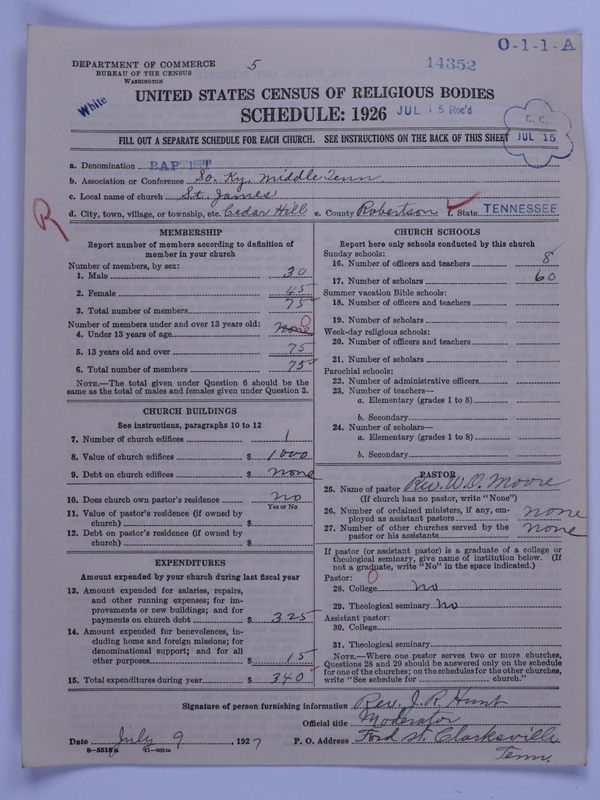 O-1-1-A
DEPARTMENT OF COMMERCE
BUREAU OF THE CENSUS
WASHINGTON
5
14352
White
UNITED STATES CENSUS OF RELIGIOUS BODIES
SCHEDULE: 1926
JUL 15 Rec'd
C. C.
JUL 15
FILL OUT A SEPARATE SCHEDULE FOR EACH CHURCH. SEE INSTRUCTIONS ON THE BACK OF THIS SHEET
a. Denomination BAPTIST
b. Association or Conference So. Ky. Middle Tenn
c. Local name of church St. James
d. City, town, village, or township, etc. Cedar Hill e. County Robertson f. State TENNESSEE
R
MEMBERSHIP
Report number of members according to definition of
member in your church
Number of members, by sex:
1. Male 30
2. Female 45
3. Total number of members 75
Number of members under and over 13 years old:
4. Under 13 years of age none 0
5. 13 years old and over 75
6. Total number of members 75
NOTE.—The total given under Question 6 should be
the same as the total of males and females given under Question 3.
CHURCH BUILDINGS
See instructions, paragraphs 10 to 12
7. Number of church edifices 1
8. Value of church edifices $ 1000
9. Debt on church edifices $ none
10. Does church own pastor's residence no
Yes or No
11. Value of pastor's residence (if owned by
church) $
12. Debt on pastor's residence (if owned by
church) $
EXPENDITURES
Amount expended by your church during last fiscal year
13. Amount expended for salaries, repairs,
and other running expenses; for im-
provements or new buildings; and for
payments on church debt $ 325
14. Amount expended for benevolences, in-
cluding home and foreign missions; for
denominational support; and for all
other purposes $ 15
15. Total expenditures during year $ 340
CHURCH SCHOOLS
Report here only schools conducted by this church
Sunday schools:
16. Number of officers and teachers 8
17. Number of scholars 60
Summer vacation Bible schools:
18. Number of officers and teachers
19. Number of scholars
Week-day religious schools:
20. Number of officers and teachers
21. Number of scholars
Parochial schools:
22. Number of administrative officers
23. Number of teachers—
a. Elementary (grades 1 to 8)
b. Secondary
24. Number of scholars—
a. Elementary (grades 1 to 8)
b. Secondary
PASTOR
25. Name of pastor Rev. W. D. Moore
(If church has no pastor, write "None")
26. Number of ordained ministers, if any, em-
ployed as assistant pastors none
27. Number of other churches served by the
pastor or his assistants none
If pastor (or assistant pastor) is a graduate of a college or
theological seminary, give name of institution below. (If
not a graduate, write "No" in the space indicated.)
Pastor: 0
28. College no
29. Theological seminary no
Assistant pastor:
30. College
31. Theological seminary
NOTE.—Where one pastor serves two or more churches,
Questions 28 and 29 should be answered only on the schedule
for one of the churches; on the schedules for the other churches,
write "See schedule for church."
Signature of person furnishing information Rev. J. R. Hunt
Official title Moderator
Date July 9, 1927 P. O. Address Ford St. Clarksville
Tenn.